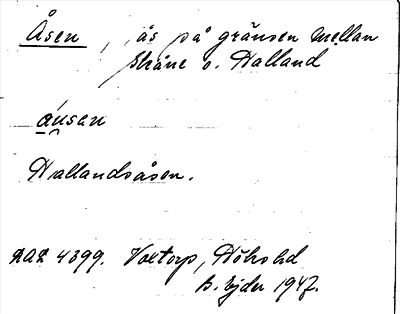 Åsen, ås på gränsen mellan
Skåne o. Halland
ausan
Hallandsåsen.
4399. Voxtorp, Höks hd
B. Ejder 1947.